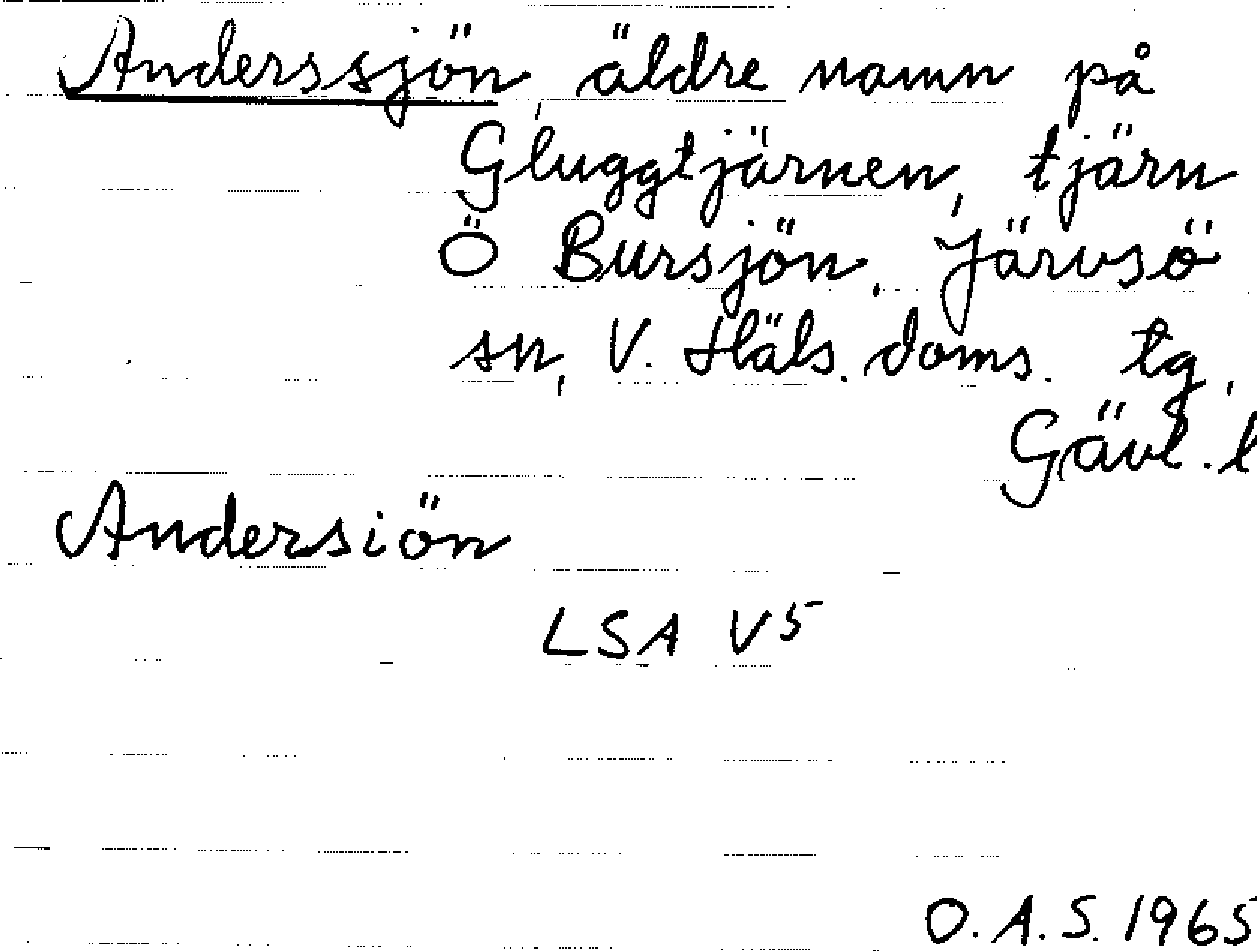 Anderssjön, äldre namn på
Gluggtjärnen, tjärn
Ö Bursjön, Järvsö
sn, V. Häls. doms. tg,
Gävl. l
Andersiön
LSA V5
O.A.S. 1965